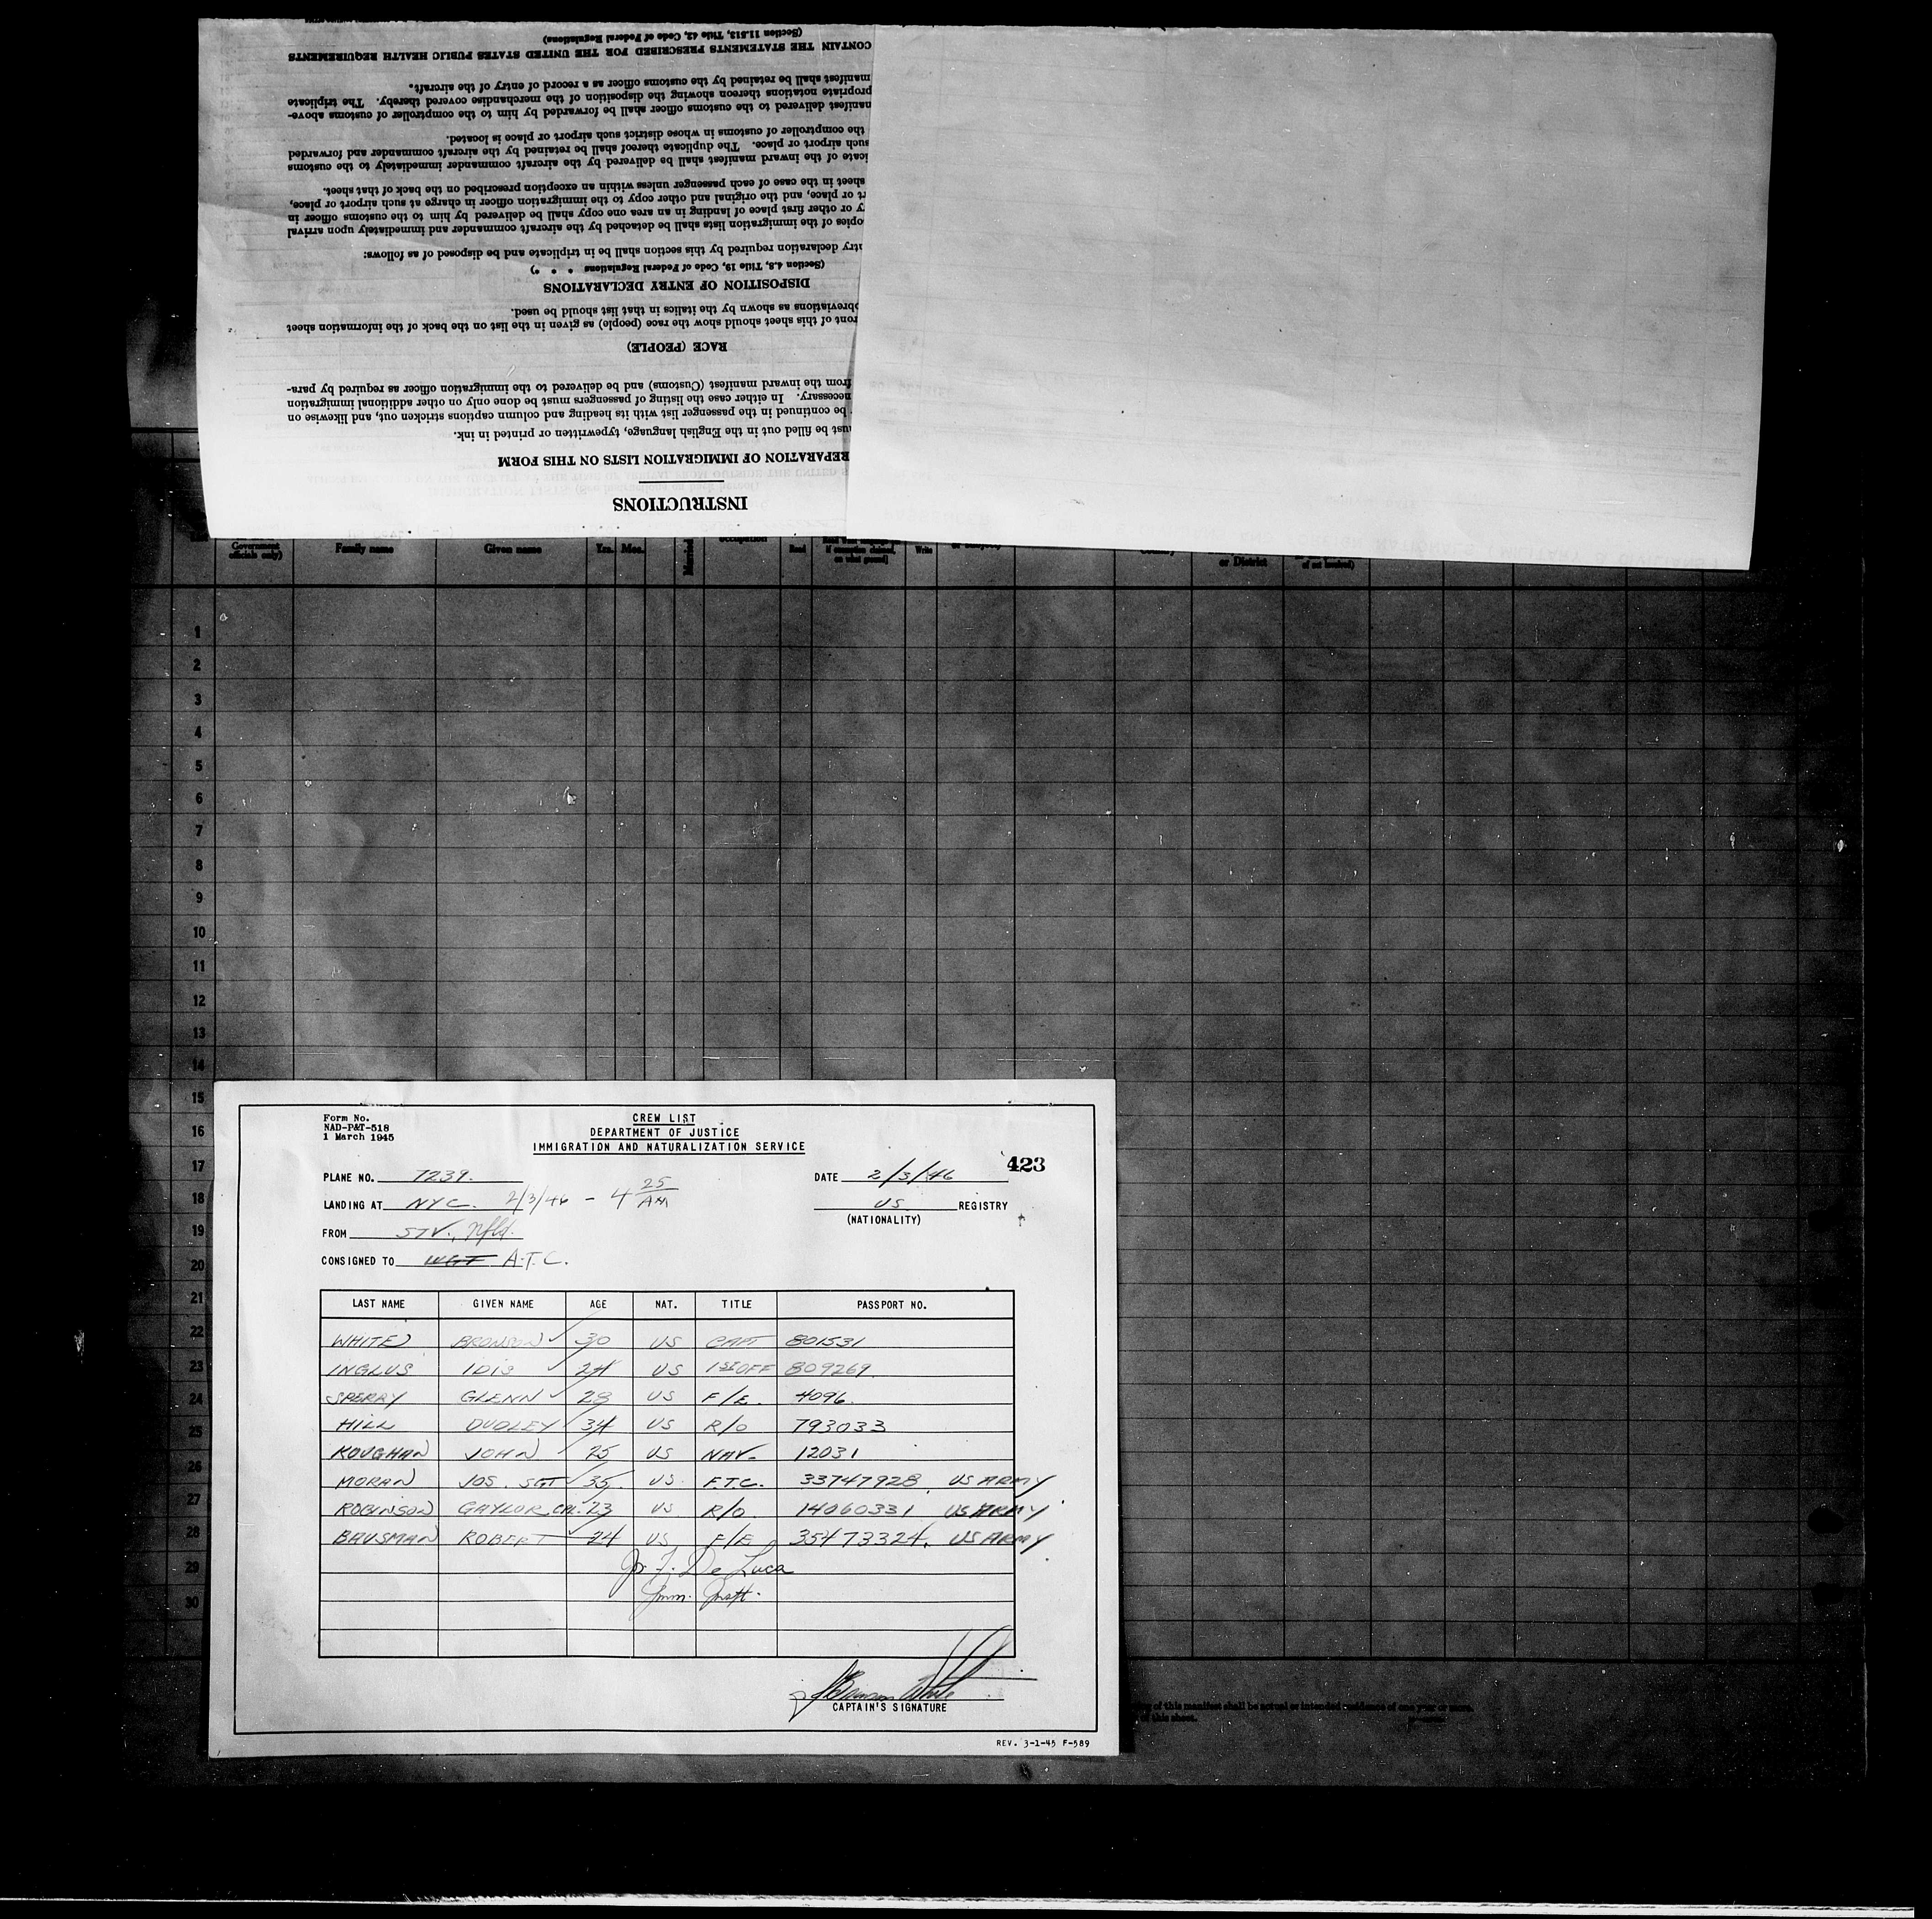 (Section 11.513, Title 42, Code of Federal Regulations)
CONTAIN THE STATEMENTS PRESCRIBED FOR THE UNITED STATES PUBLIC HEALTH REQUIREMENTS
manifest shall be retained by the customs officer as a record of entry of the aircraft.
propriate notations thereon showing the disposition of the merchandise covered thereby. The triplicate
manifest delivered to the customs officer shall be forwarded by him to the comptroller of customs above-
the comptroller of customs in whose district such airport or place is located.
such airport or place. The duplicate thereof shall be retained by the aircraft commander and forwarded
icate of the inward manifest shall be delivered by the aircraft commander immediately to the customs
sheet in the case of each passenger unless within an exception prescribed on the back of that sheet.
rt or place, and the original and other copy to the immigration officer in charge at such airport or place,
y or other first place of landing in an area one copy shall be delivered by him to the customs officer in
opies of the immigration lists shall be detached by the aircraft commander and immediately upon arrival
ntry declaration required by this section shall be in triplicate and be disposed of as follows:
(Section 4.8, Title 19, Code of Federal Regulations * * *)
DISPOSITION OF ENTRY DECLARATIONS
bbreviations as shown by the italics in that list should be used.
front of this sheet should show the race (people) as given in the list on the back of the information sheet
RACE (PEOPLE)
from the inward manifest (Customs) and be delivered to the immigration officer as required by para-
necessary. In either case the listing of passengers must be done only on other additional immigration
be continued in the passenger list with its heading and column captions stricken out, and likewise on
ust be filled out in the English language, typewritten or printed in ink.
REPARATION OF IMMIGRATION LISTS ON THIS FORM
INSTRUCTIONS
Government officials only) Family name Given name Yrs. Mos. Married occupation Read Write or District
1
2
3
4
5
6
7
8
9
10
11
12
13
14
15
16
17
18
19
20
21
22
23
24
25
26
27
28
29
30
Form No.
NAD-P&T-518
1 March 1945
CREW LIST
DEPARTMENT OF JUSTICE
IMMIGRATION AND NATURALIZATION SERVICE
423
PLANE NO. 7239. DATE 2/3/46
LANDING AT NYC. 2/3/46 - 4 25 AM US REGISTRY
(NATIONALITY)
FROM STV., Nfld.
CONSIGNED TO A.T.C.
LAST NAME GIVEN NAME AGE NAT. TITLE PASSPORT NO.
WHITE BRONSON 30 US CAPT 801531
INGLUS IDIS 24 US 1ST OFF 809269.
SPERRY GLENN 28 US F/E. 4096.
HILL DUDLEY 34 US R/O 793033
KOUGHAN JOHN 25 US NAV. 12031
MORAN JOS. SGT 35. US. F.T.C. 33747928. US ARMY
ROBINSON GAYLOR CPL. 23 US R/O. 14060331 US ARMY
BAUSMAN ROBERT 24 US F/E 35473324. US ARMY
Jos. F. De Luca
Imm. Insp.
J Bronson White
CAPTAIN'S SIGNATURE
of this manifest shall be actual or intended residence of one year or more.
of this sheet.
REV. 3-1-45 F-589